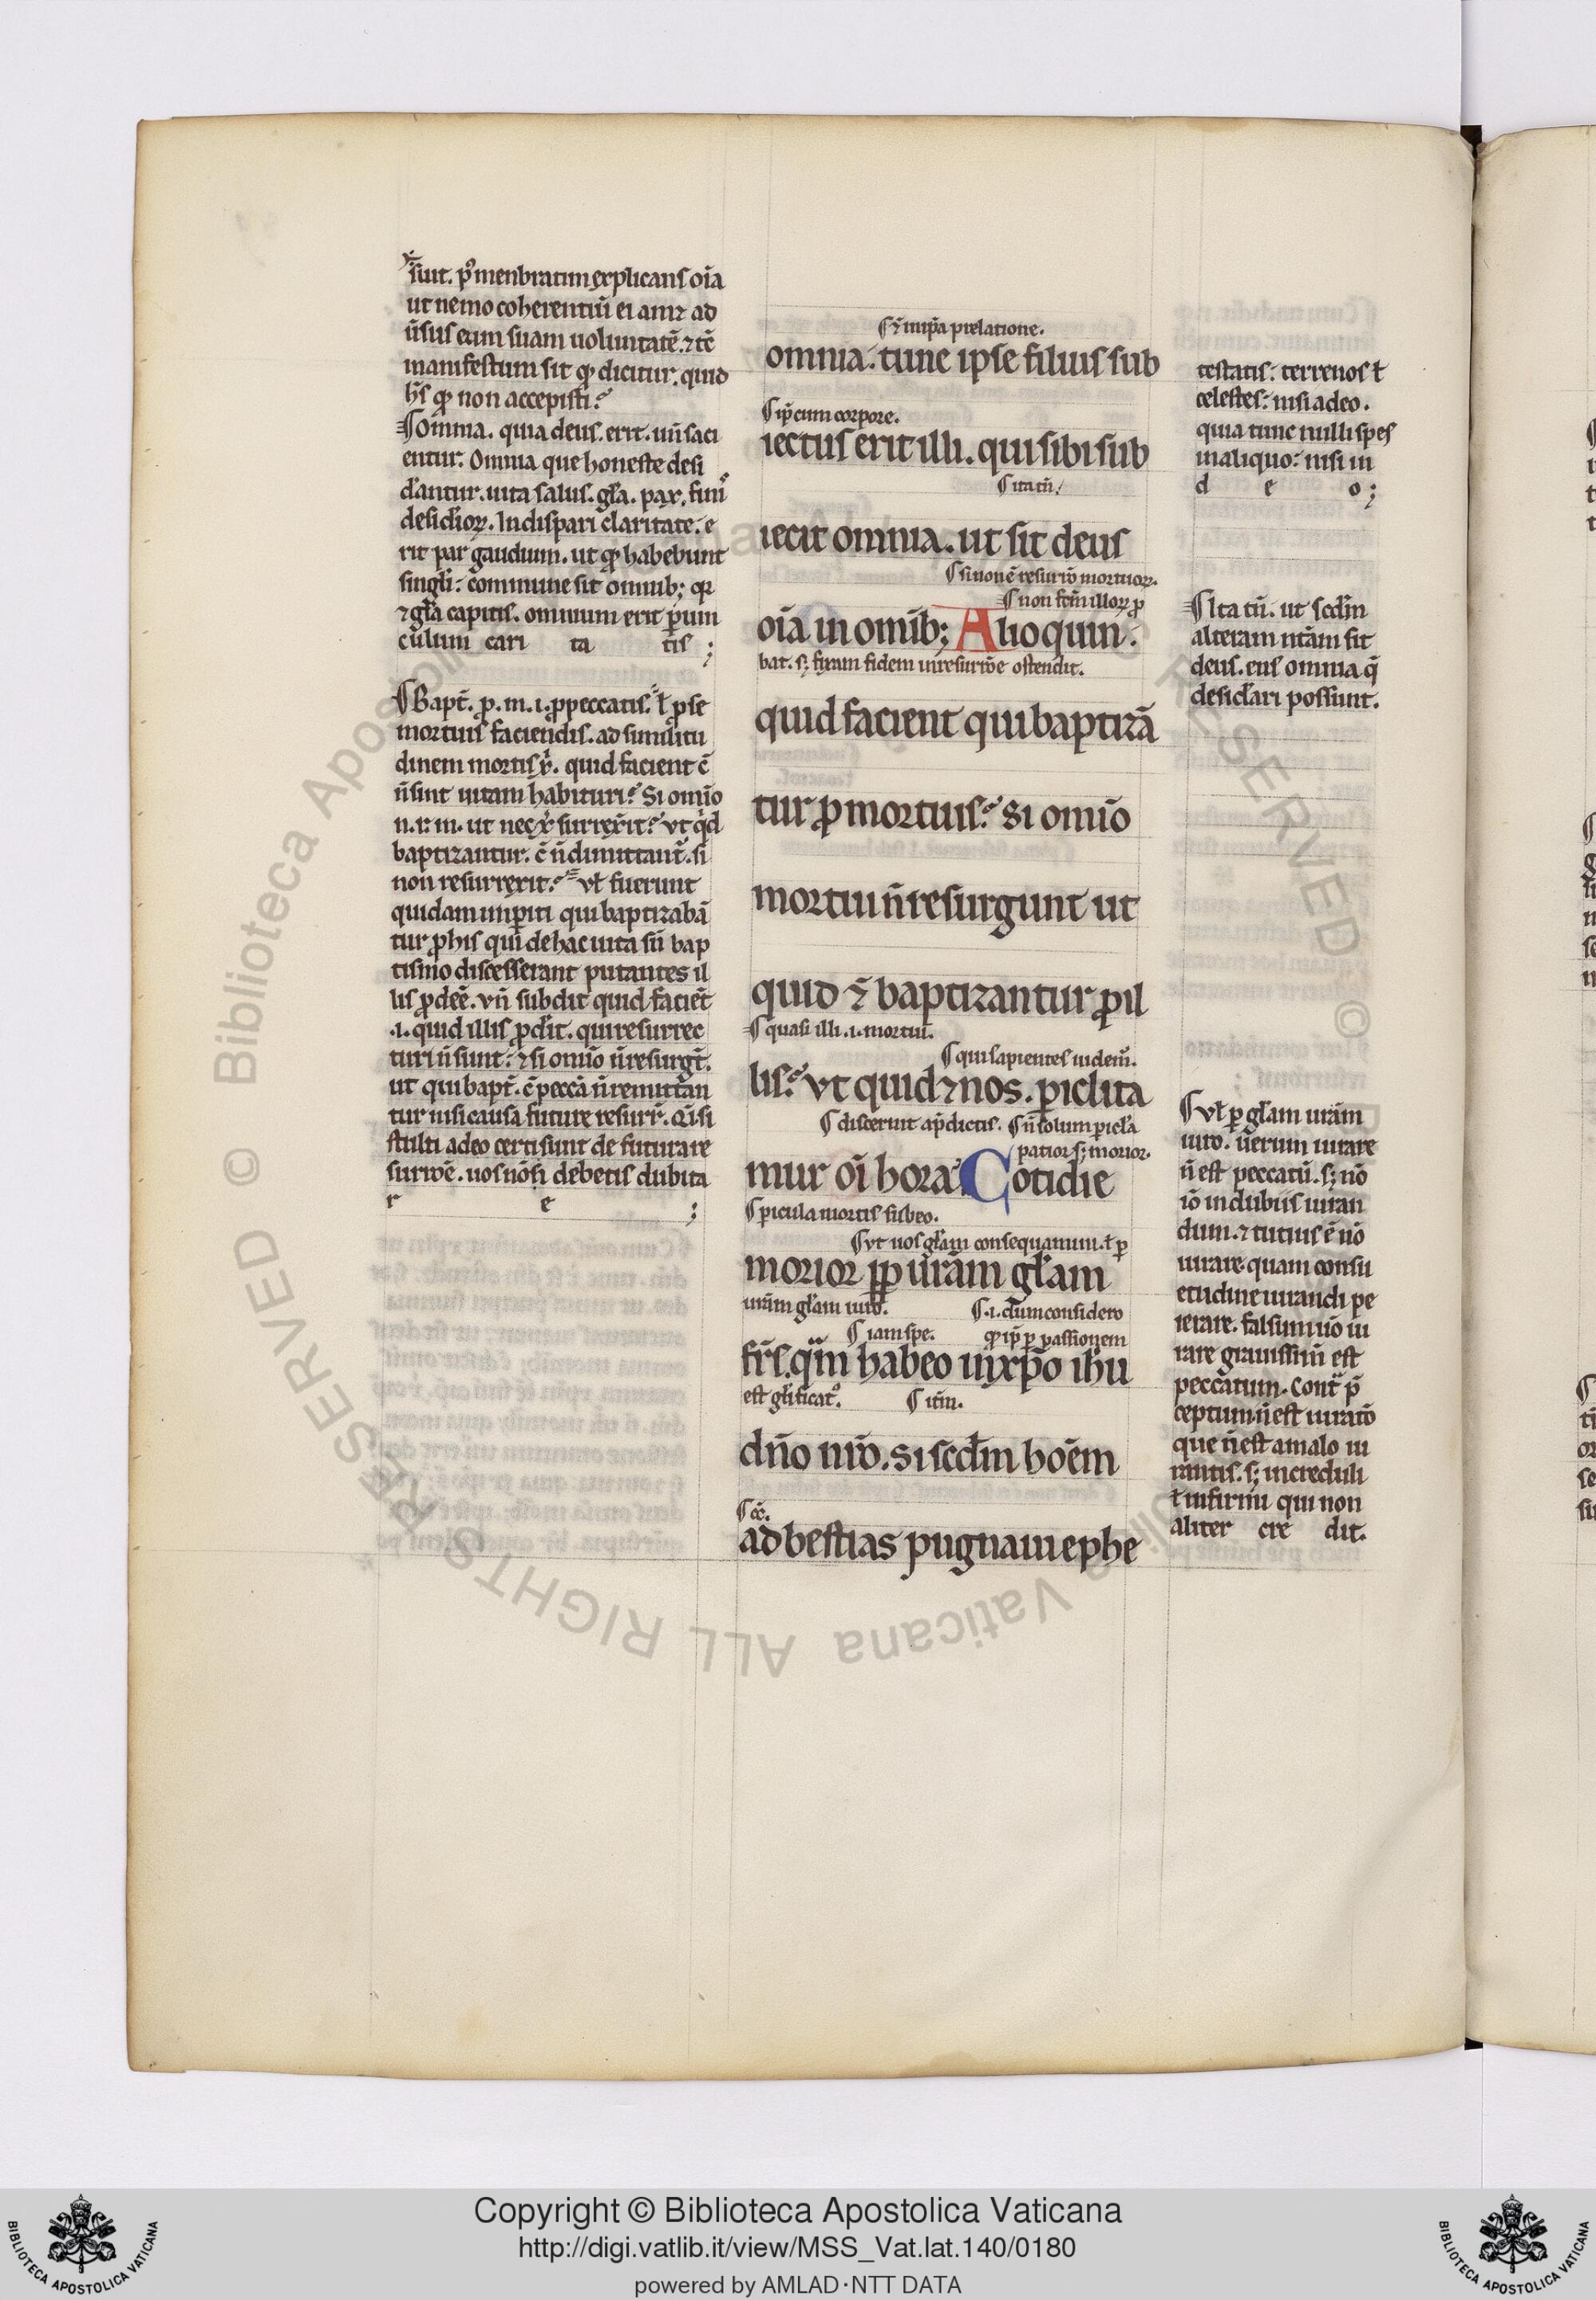 siut. pꝰ menbratim explicans oīa
ut nemo coherentiū ei am̄ ad
ūsus eum suam uoluntatē. ⁊ tē
manifestum sit qđ dicitur. quid
h̄s qđ non accepisti?
¶ Omnia. quia deus. erit. un̄ saci
entur. Omnia que honeste desi
d̄antur. uita salus. gl̄a. pax. finiꝰ
desid̄ioꝝ. In dispari claritate. e
rit par gaudium. ut qđ habebunt
singl̄i: commune sit omnib; qꝛ
⁊ gl̄a capitis. omnium erit p̱uin
culum cari ta tis ;
¶ Bapt̄. ꝓ. m. .i. ꝓ peccatis. ł ꝓ se
mortuis faciendis. ad similitu
dinem mortis x̄. quid facient ē
n̄ sint uitam habituri? Si omīo
n. r. m. ut nec x̄ surrexerit? vt qid
baptizantur. ē n̄ dimittant̄. si
non resurrexerit? vł fuerunt
quidam imperiti qui baptizabā
tur ꝓ his qui de hac uita sn̄ bap
tismo discesserant putantes il
lis ꝓdeē. vn̄ subdit quid facient̄
.i. quid illis ꝓd̄it. qui resurrec
turi n̄ sunt? ⁊ si omīo n̄ resurgt̄.
ut qui bapt̄. ē peccā n̄ remittan
tur nisi causa future resurr̄. Qi. si
stulti adeo certi sunt de futura re
surrōe. uos nō si debetis dubita
r e ;
¶ ⁊ in ip̄a prelatione.
omnia. tunc ipse filius sub
¶ ip̄e cum corpore.
iectus erit illi. qui sibi sub
¶ ita tn̄.
iecit omnia. ut sit deus
¶ si non ē resurrō mortuoꝝ.
¶ non fc̄m illoꝝ ꝓ
oīa in omīb; Alioquin.
bat. s; fixam fidem in resurrōe ostendit.
quid facient qui baptizā
tur ꝓ mortuis? Si omīo
mortui n̄ resurgunt ut
quid ⁊ baptizantur ꝓ il
¶ quasi illi .i. mortui.
¶ qui sapientes uidem̄.
lis? vt quid ⁊ nos. ꝑiclita
¶ discernit ap̄dictis. ¶ n̄ solum ꝑicl̄a
patior s; morior.
mur oī hora? Cotidie
¶ ꝑicula mortis subeo.
¶ vt uos gl̄am consequamini. ł ꝑ
morior ꝓp ur̄am gl̄am
ur̄am gl̄am iuro. ¶ .i. dum considero
¶ iam spe. qđ ip̄e ꝑ passionem
fr̄s. qm̄ habeo in xp̄o ih̄u
est gl̄ificatꝰ. ¶ it̄m.
dn̄o nr̄o. Si scd̄m hoēm
¶ cc̄.
ad bestias pugnaui ephe
testatis: terrenos ł
celestes: nisi a deo.
quia tunc nulli spes
in aliquo: nisi in
d e o ;
¶ Ita tn̄. ut scd̄m
alteram nt̄am sit
deus. eius omnia. q̄
desid̄ari possunt.
¶ vł ꝑ gl̄am ur̄am
iuro. uerum iurare
n̄ est peccatū. s; nō
iō in dubiis iuran
dum. ⁊ tutius ē nō
iurare. quam consu
etudine iurandi pe
ierare. falsum uō iu
rare grauissimū est
peccatum. Cont̄ p̄
ceptum n̄ est iuratō
que n̄ est a malo iu
rantis. s; increduli
ł infirmi qui non
aliter cre dit.
Copyright © Biblioteca Apostolica Vaticana
http://digi.vatlib.it/view/MSS_Vat.lat.140/0180
powered by AMLAD·NTT DATA
BIBLIOTECA APOSTOLICA VATICANA
BIBLIOTECA APOSTOLICA VATICANA
© Biblioteca Apostolica Vaticana ALL RIGHTS RESERVED